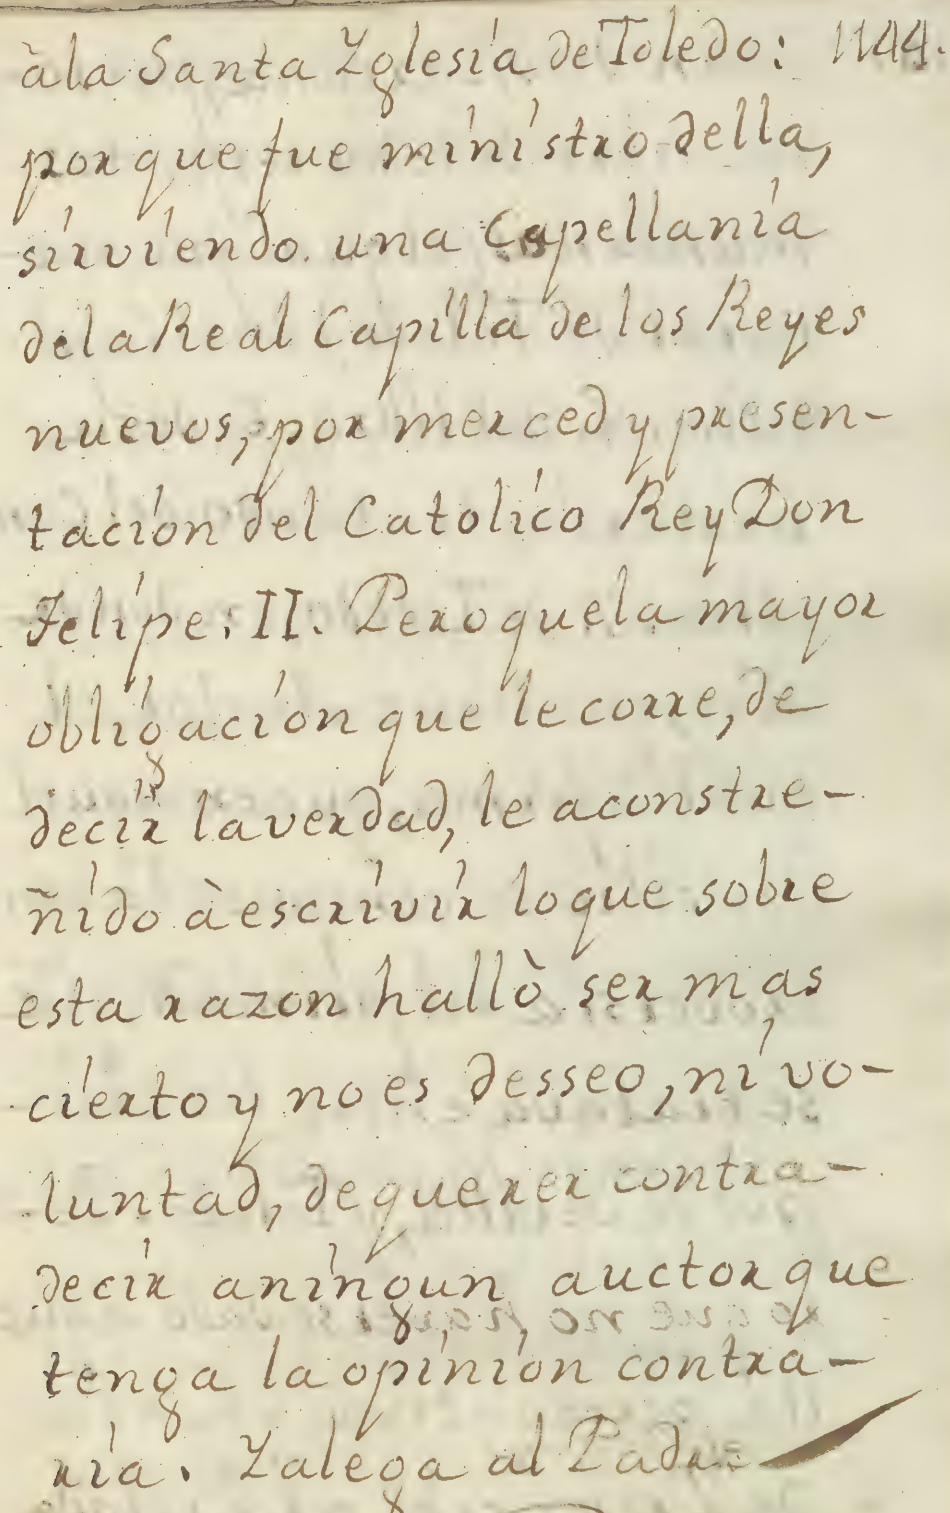 àla Santa Yglesia de Toledo: 1144.
porque fue ministro della,
sirviendo una Capellania
dela Real Capilla de los Reyes
nuevos, por merced y presen-
tacion del Catolico Rey Don
Felipe: II. Peroquela mayor
obligacion que le corre, de
decir laverdad, le aconstre-
ñido à escrivir loque sobre
esta razon hallò ser mas
cierto y no es desseo, ni vo-
luntad, dequerer contra-
decir aningun auctor que
tenga la opinion contra-
ria. Yalega al Padre